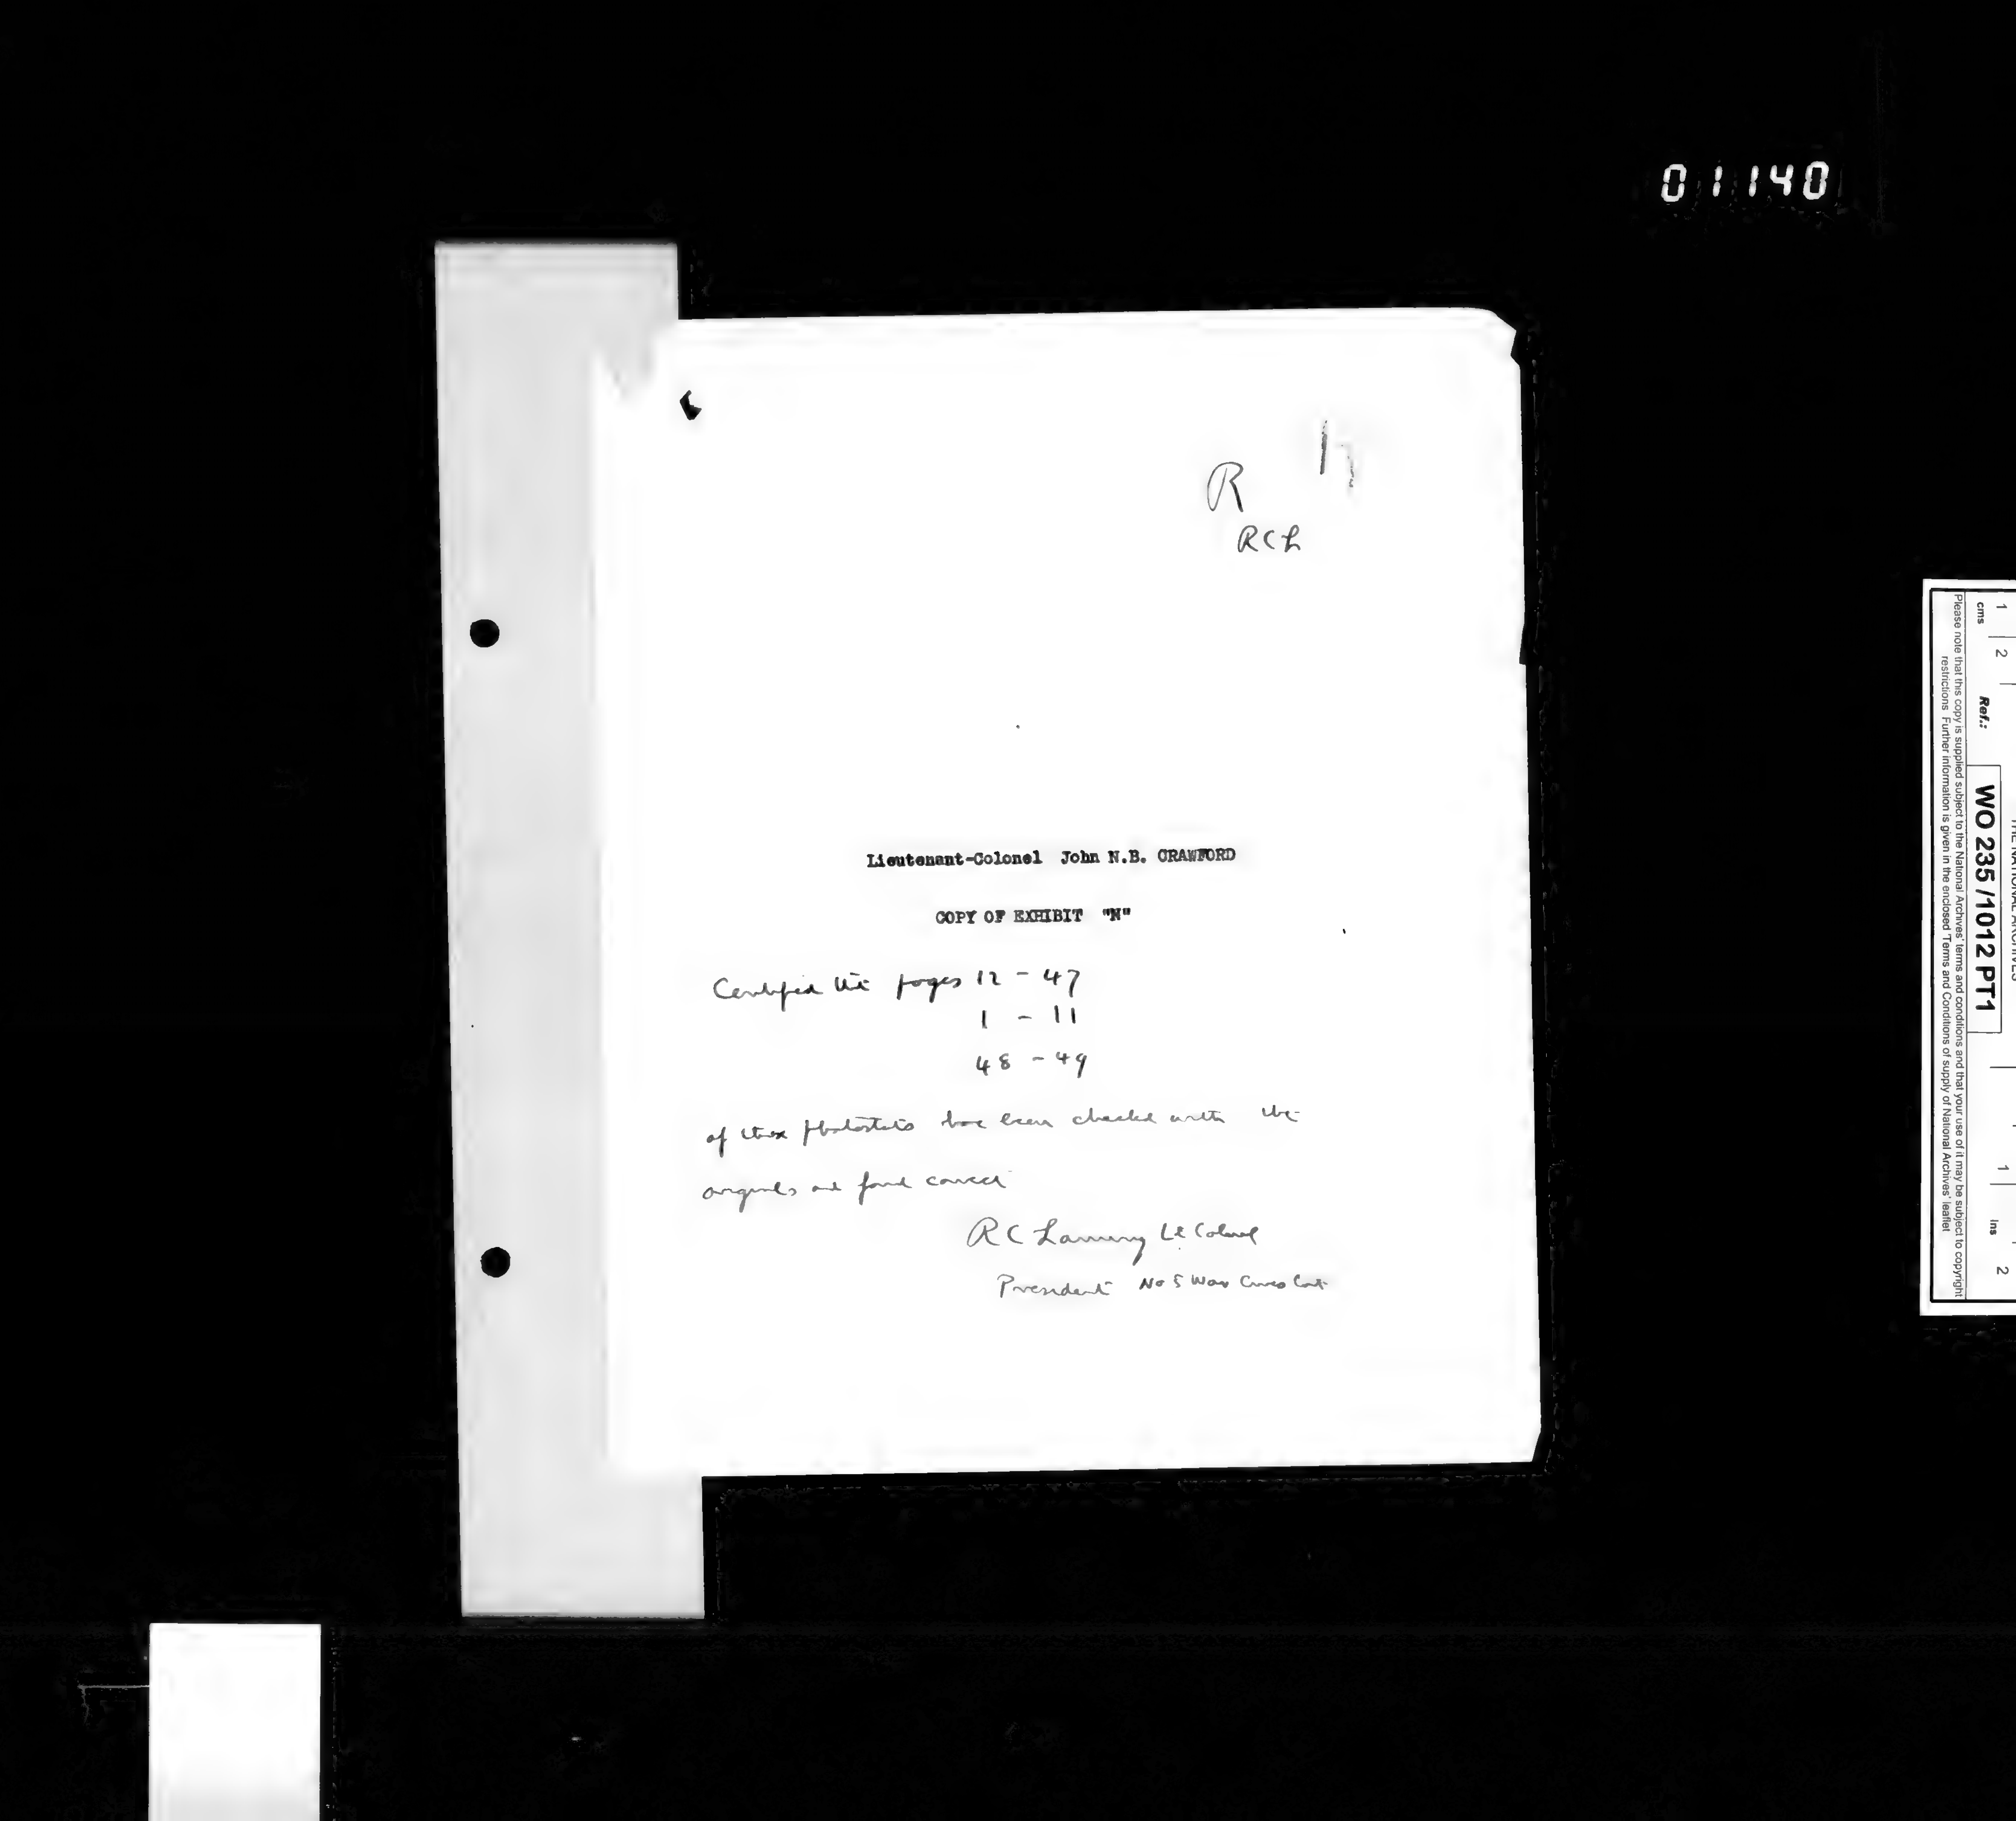 01140
17
R
RCL
Lieutenant-Colonel John N.B. CRAWFORD
COPY OF EXHIBIT "N"
Certified that pages 12 - 47
1 - 11
48 - 49
of these photostats have been checked with the
originals and found correct
RC Laming Lt Colonel
President No 5 War Crimes Court
THE NATIONAL ARCHIVES
1 2
cms
Ref.:
WO 235/1012 PT1
1 ins 2
Please note that this copy is supplied subject to the National Archives' terms and conditions and that your use of it may be subject to copyright
restrictions. Further information is given in the enclosed 'Terms and Conditions of supply of National Archives' leaflet